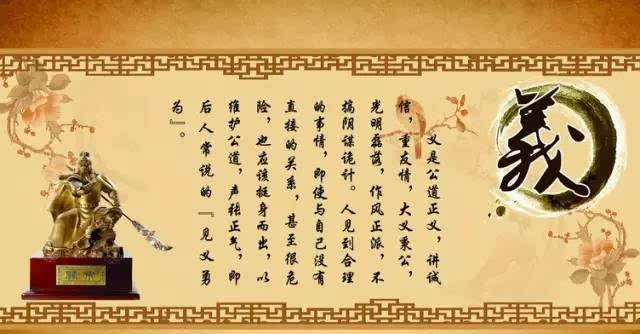 義
义是公道正义，讲诚
信，重友情，大义秉公，
光明磊落，作风正派，不
搞阴谋诡计。人见到合理
的事情，即使与自己没有
直接的关系，甚至很危
险，也应该挺身而出，以
维护公道，声张正气，即
后人常说的『见义勇
为』。